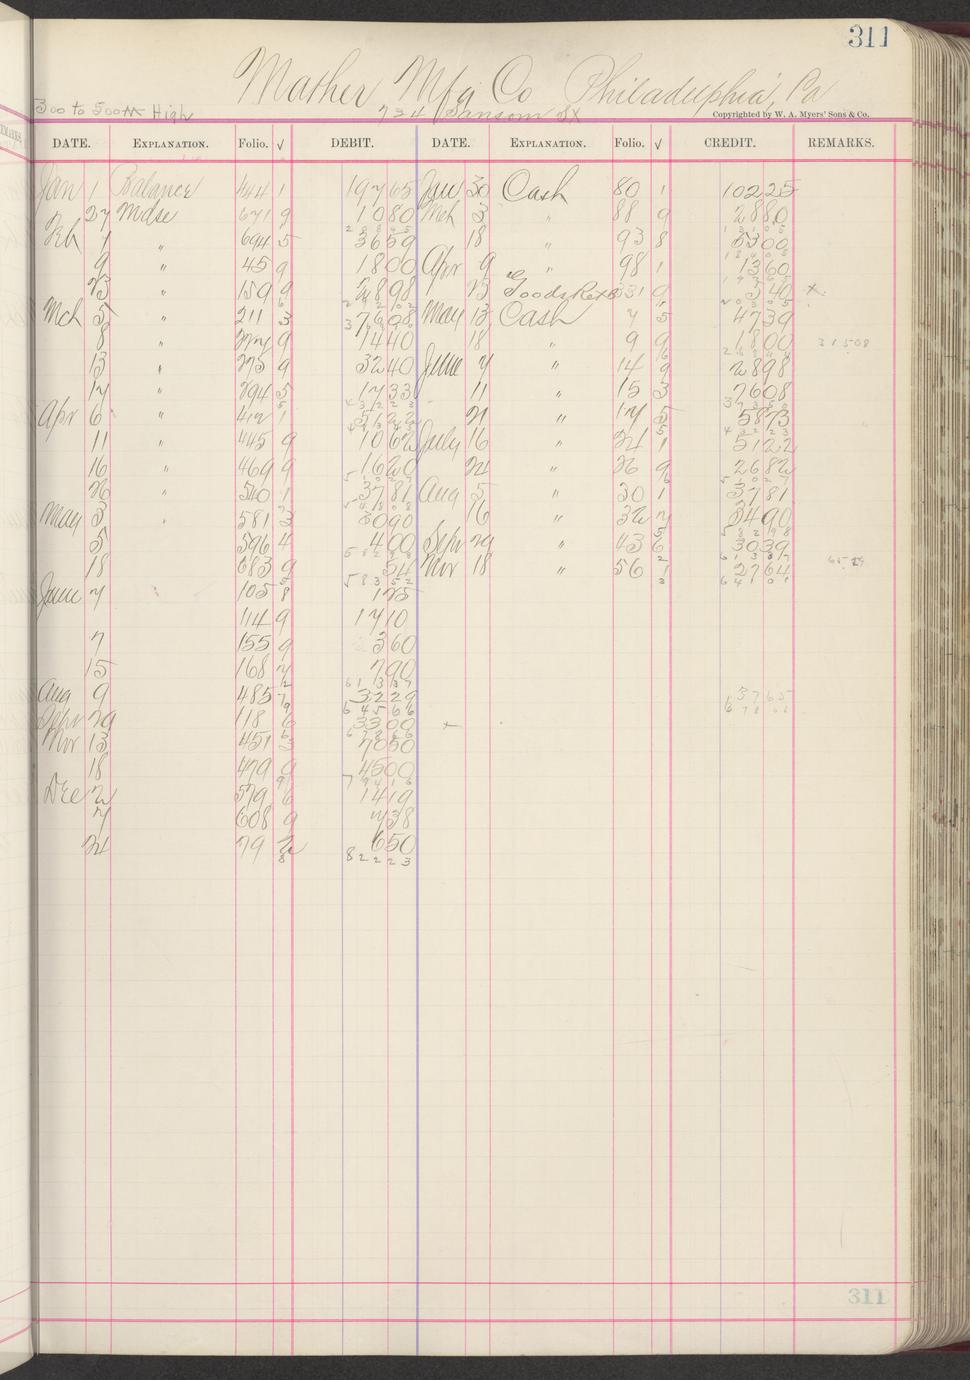 311
Mather Mfg Co Philadelphia, Pa
300 to 500 M High 724 Sansom St
Copyrighted by W. A. Myers' Sons & Co.
DATE. EXPLANATION. Folio. √ DEBIT. DATE. EXPLANATION. Folio. √ CREDIT. REMARKS.
Jan 1 Balance 444 1 197 65 Jan 30 Cash 80 1 102 25
27 Mdse 671 9 10 80 Mch 3 " 88 9 28 80
Feb 1 " 694 5 36 59 18 " 93 8 53 00
9 " 45 9 18 00 Apr 9 " 98 1 13 60
23 " 159 9 28 98 23 Goods Retd 331 9 5 40 x
Mch 5 " 211 3 76 08 May 13 Cash 7 5 47 39
8 " 9 74 40 18 " 9 9 18 00 315 08
13 " 275 9 32 40 June 7 " 14 9 28 98
17 " 294 5 17 33 11 " 15 3 76 08
Apr 6 " 412 1 51 22 21 " 17 5 58 73
11 " 445 9 10 62 July 16 " 24 1 51 22
16 " 469 9 16 20 24 " 26 9 26 82
26 " 540 1 37 81 Aug 5 " 30 1 37 81
May 3 " 581 3 30 90 16 " 32 7 34 90
5 596 4 4 00 Sept 29 " 43 6 30 39
18 683 9 54 Nov 18 " 56 1 27 64
June 7 " 105 8 1 75
114 9 17 10
7 155 9 3 60
15 168 7 7 90
Aug 9 485 7 32 29
Sept 29 118 6 33 00
Nov 13 451 3 70 50
18 479 9 45 00
Dec 2 579 6 14 19
7 608 9 7 38
24 79 2 6 50
822 23
311